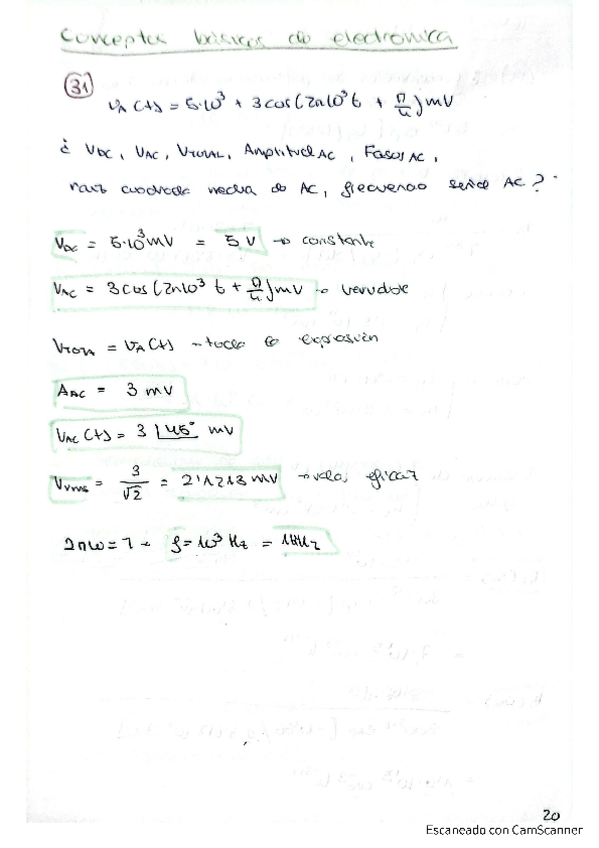 Conceptos básicos de electrónica
31
VA (t) = 5·10³ + 3cos(2π10³t + π/4) mV
¿ VDC, VAC, VTOTAL, Amplitud AC, Fasor AC,
raíz cuadrada media de AC, frecuencia señal AC?
VDC = 5·10³ mV = 5 V → constante
VAC = 3cos(2π10³ t + π/4) mV → variable
VTOTAL = VA(t) → toda la expresión
AAC = 3 mV
VAC (t) = 3 ∠45° mV
Vrms = 3/√2 = 2'1213 mV → valor eficaz
f = 10³ Hz = 1kHz
20
Escaneado con CamScanner